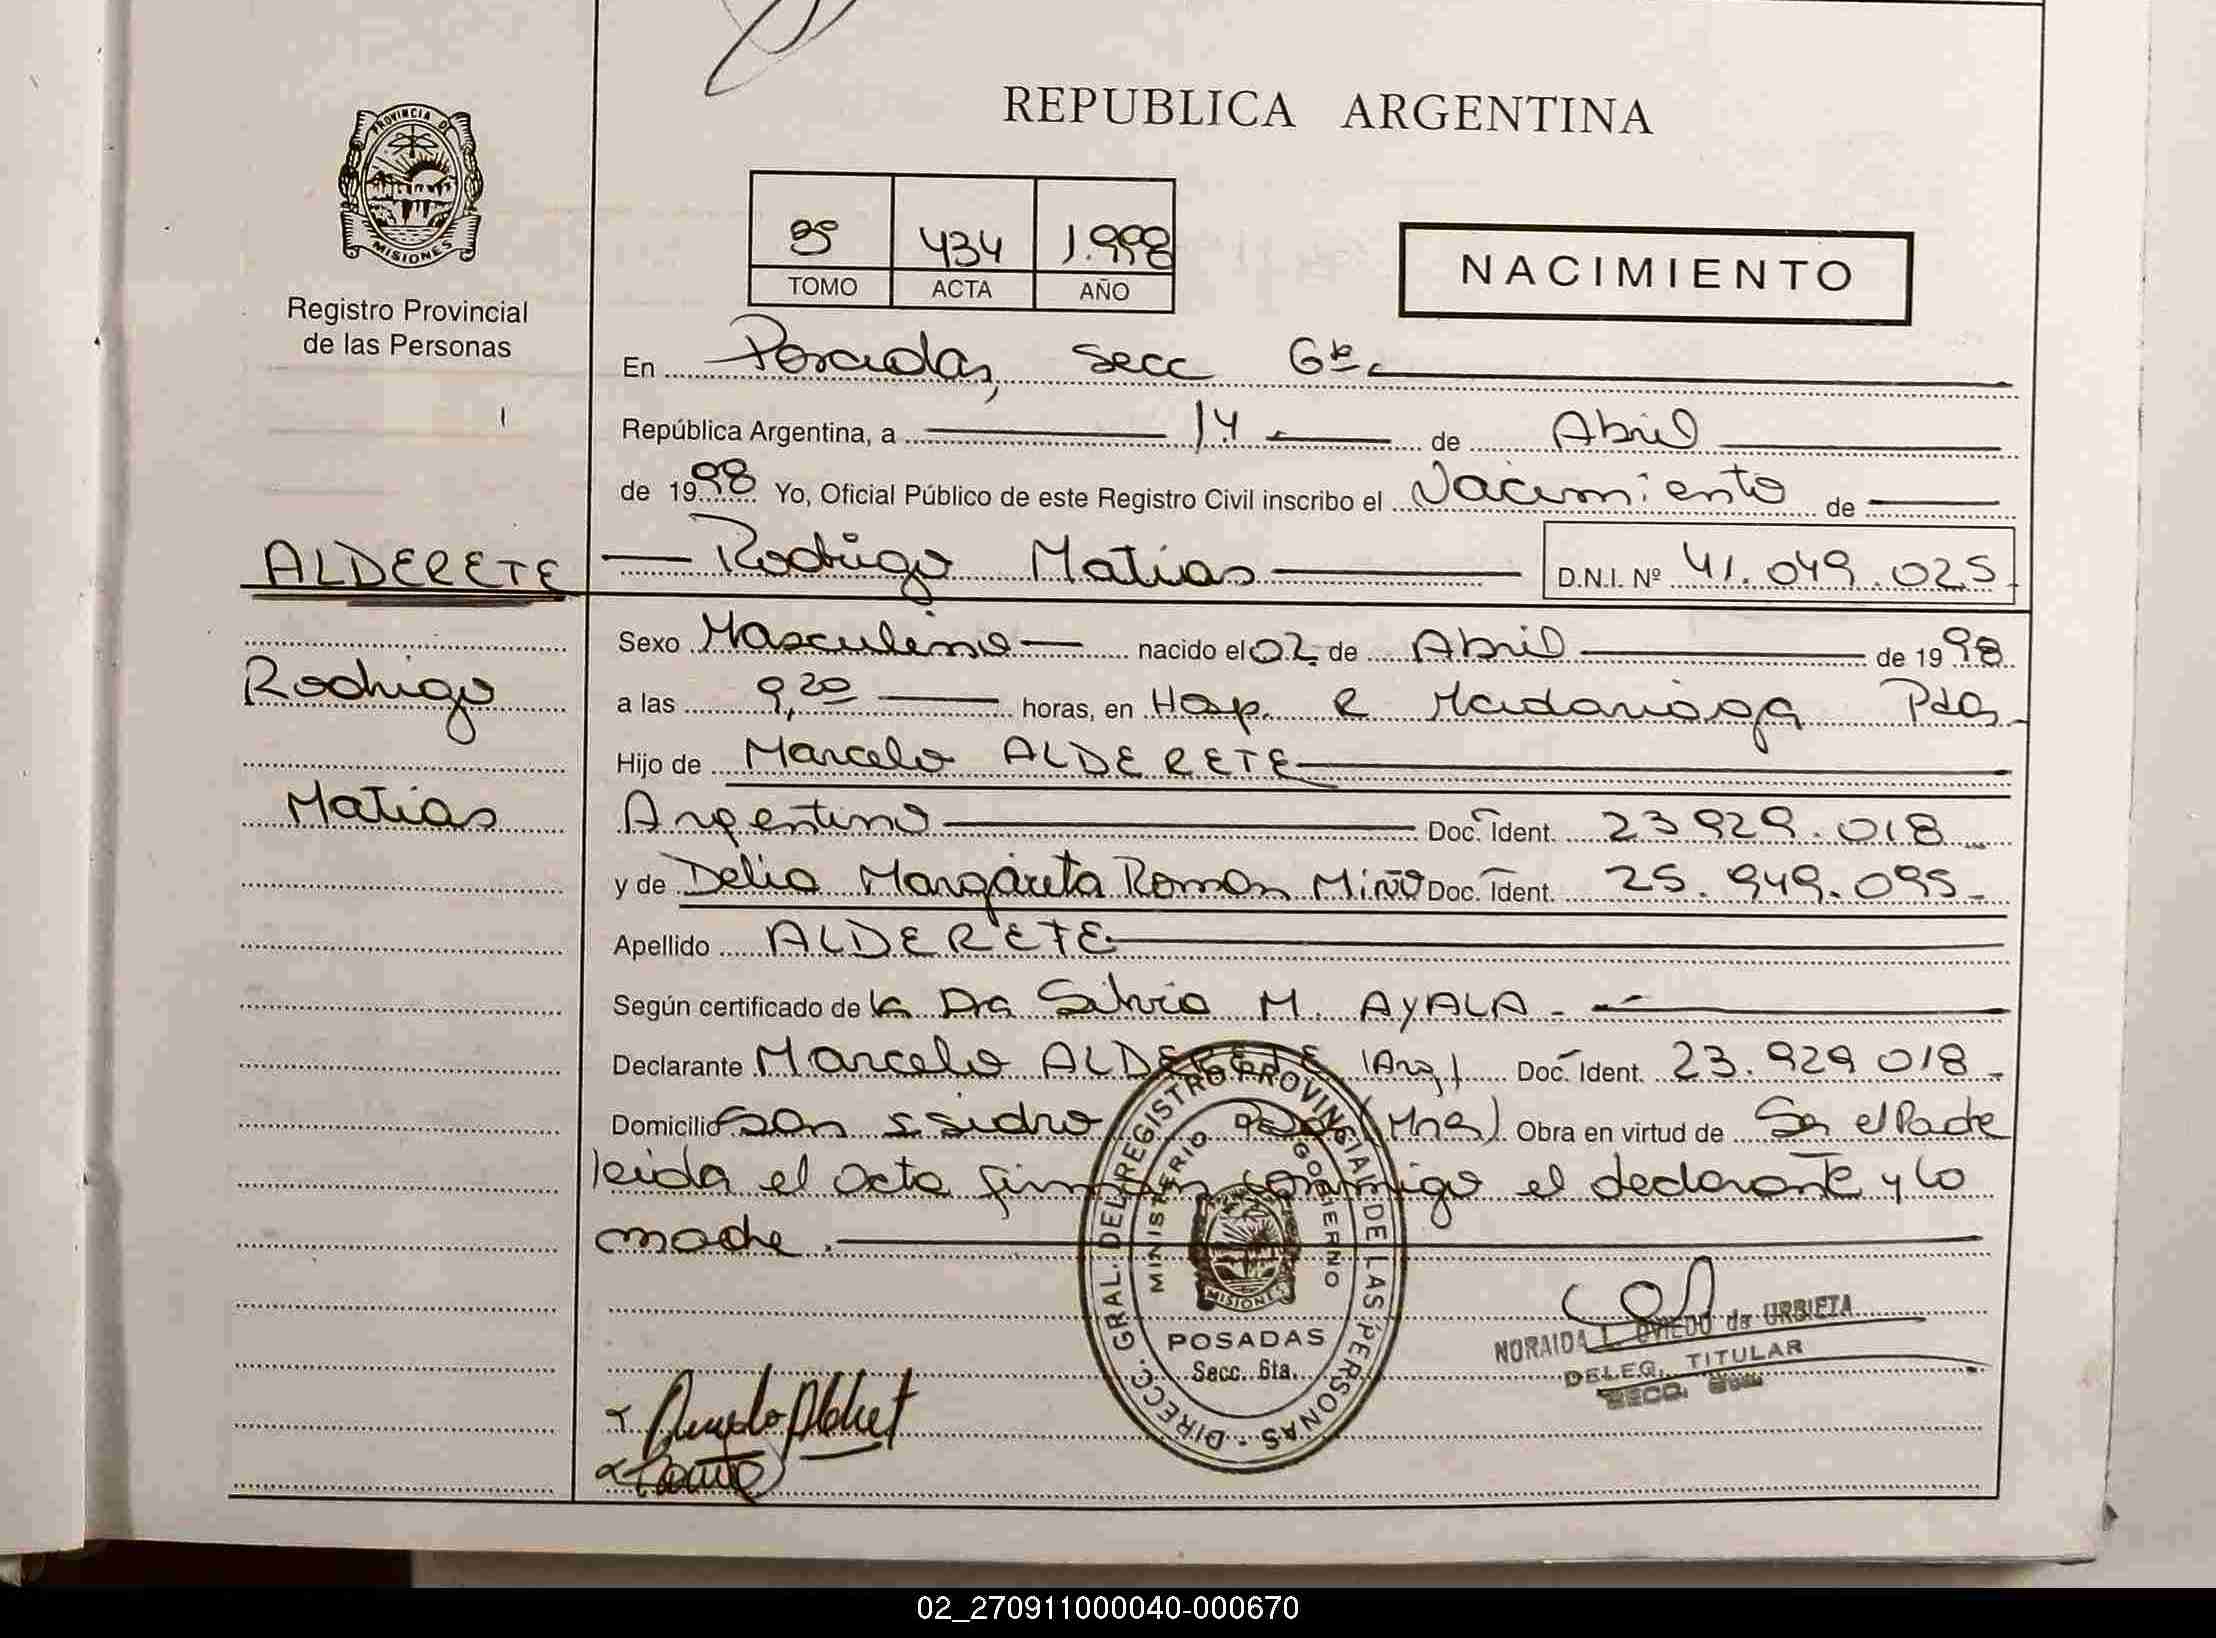 REPUBLICA ARGENTINA
PROVINCIA DE
MISIONES
Registro Provincial
de las Personas
434 1.998
TOMO ACTA AÑO
NACIMIENTO
En Posadas, secc 6ta
República Argentina, a 14 de Abril
de 1998 Yo, Oficial Público de este Registro Civil inscribo el Nacimiento de
ALDERETE Rodrigo Matias D.N.I. Nº 41.049.025
Sexo Masculino nacido el 02 de Abril de 1998
Rodrigo
a las 9,20 horas, en Hosp. R Madariaga Pdas
Hijo de Marcelo ALDERETE
Matias
Argentino Doc. Ident. 23 929.018
y de Delia Margarita Roman Miño Doc. Ident. 25.949.095
Apellido ALDERETE
Según certificado de la Dra Silvia M. AYALA
Declarante Marcelo ALDERETE (Arg) Doc. Ident. 23.929 018
Domicilio San Isidro (Mnes) Obra en virtud de Ser el Padre
leida el acta firman conmigo el declarante y la
madre.
DIRECC. GRAL. DEL REGISTRO PROVINCIAL DE LAS PERSONAS
MINISTERIO GOBIERNO
MISIONES
POSADAS
Secc. 6ta.
NORAIDA I. OVIEDO de URBIETA
DELEG. TITULAR
SECC.
02_270911000040-000670